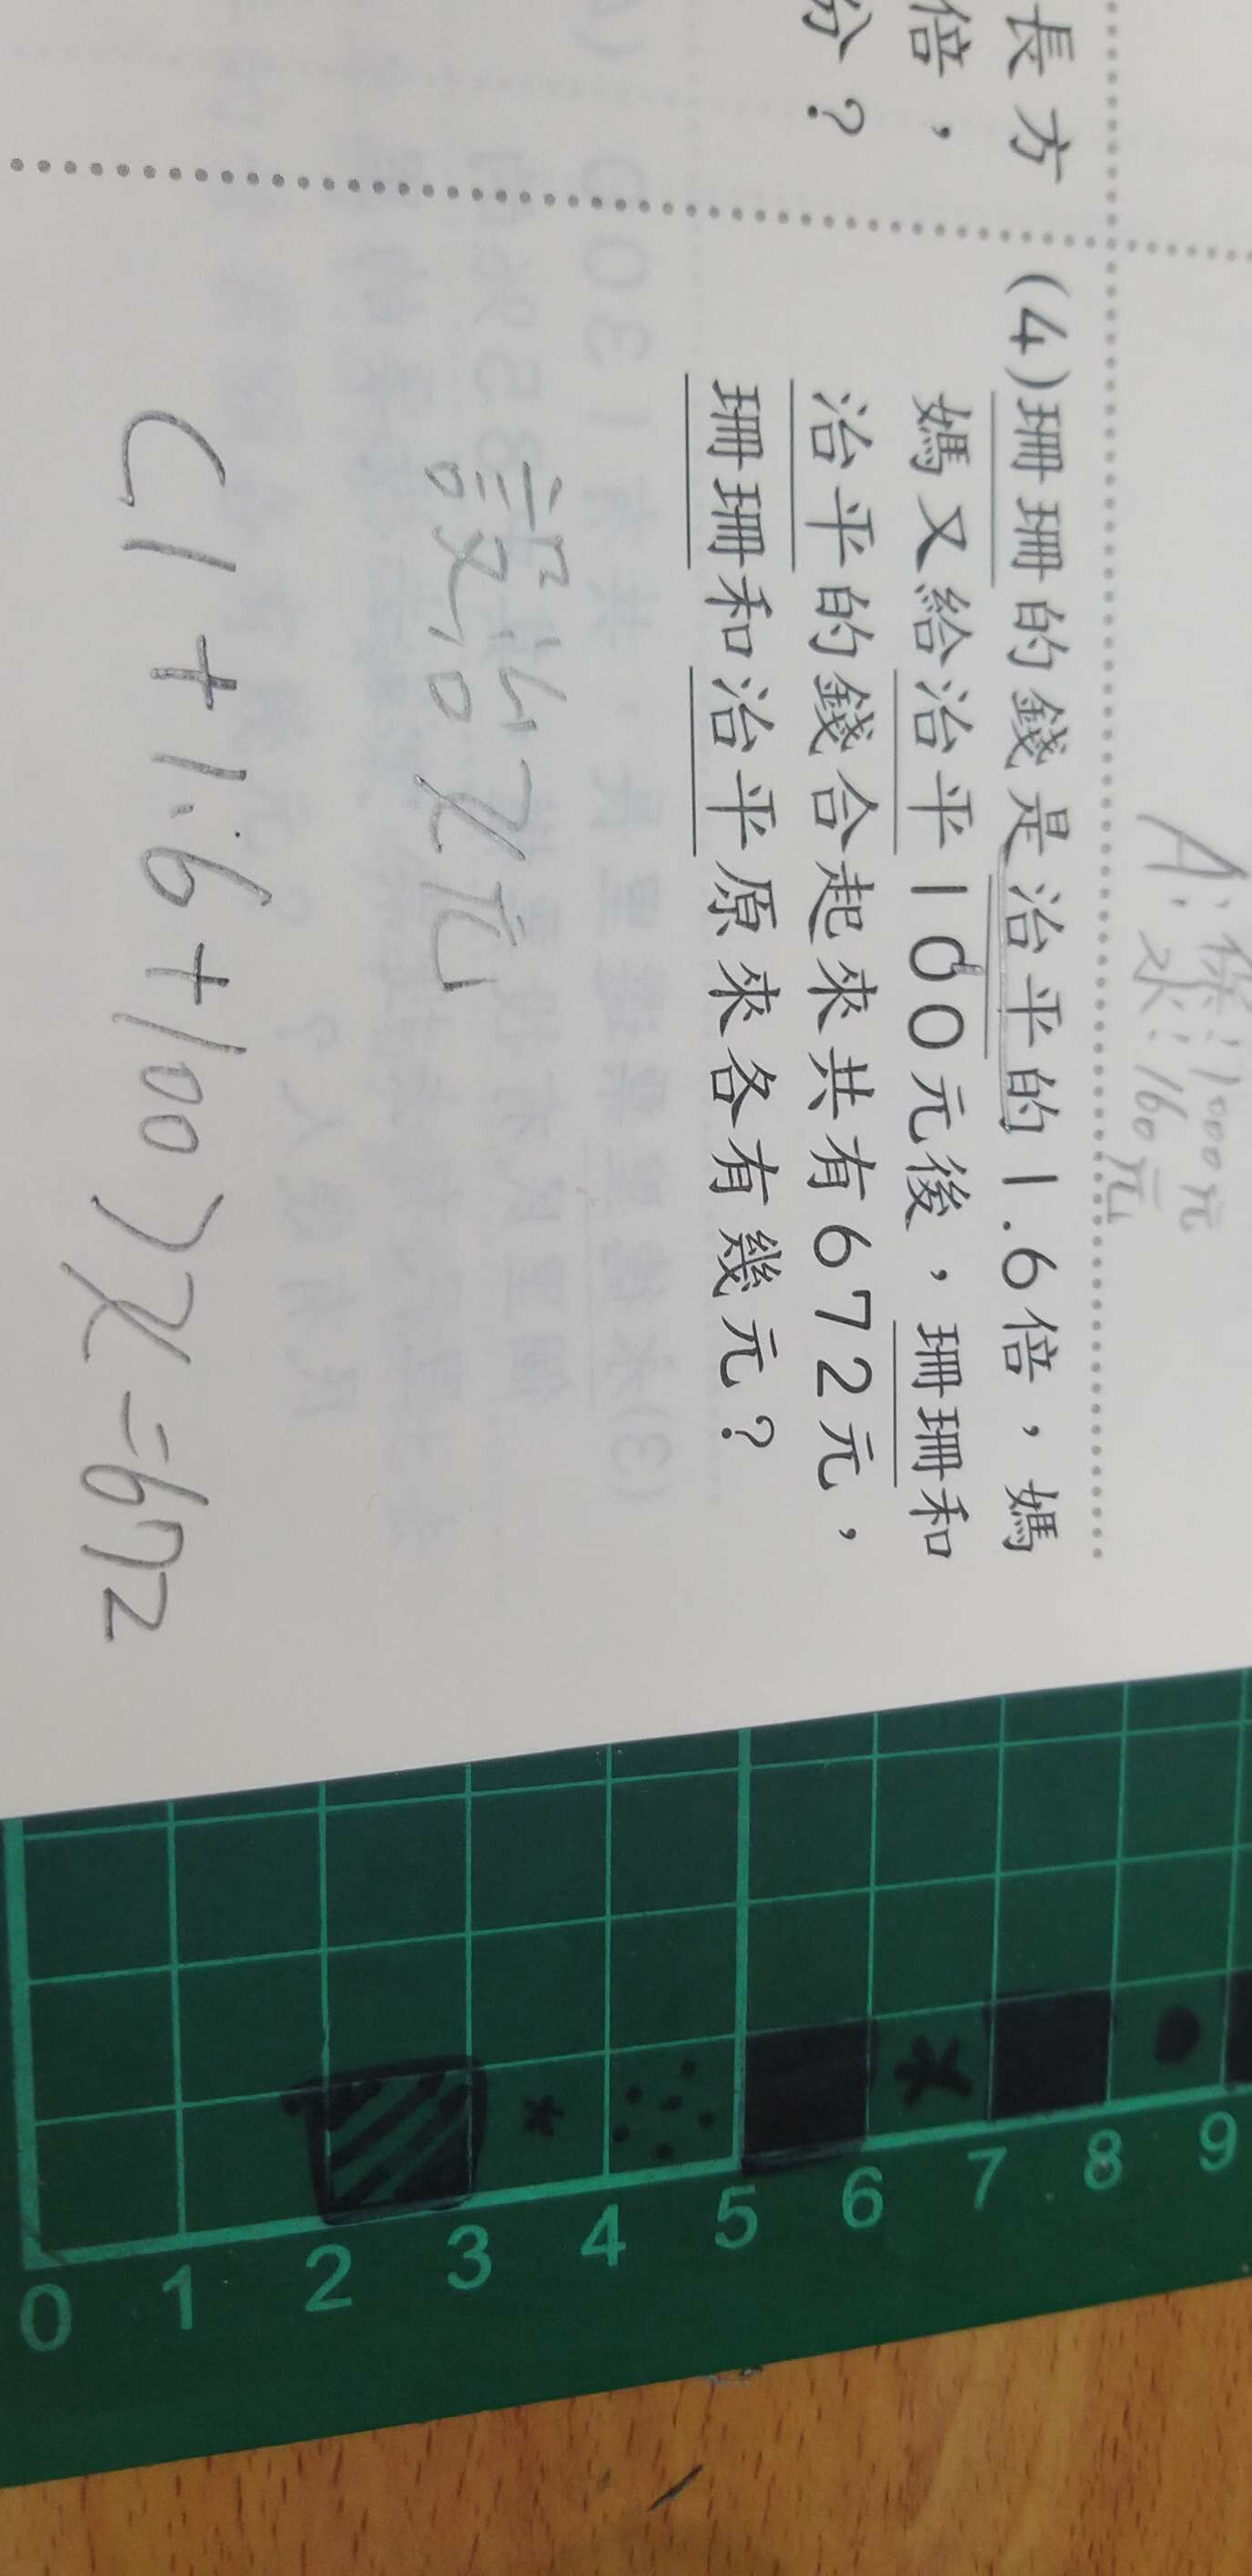 長方
倍，
分？
A：徐：1000元
水：160元
(4)珊珊的錢是治平的1.6倍，媽
媽又給治平100元後，珊珊和
治平的錢合起來共有672元，
珊珊和治平原來各有幾元？
設治χ元
(1+1.6+100)χ=672
0 1 2 3 4 5 6 7 8 9